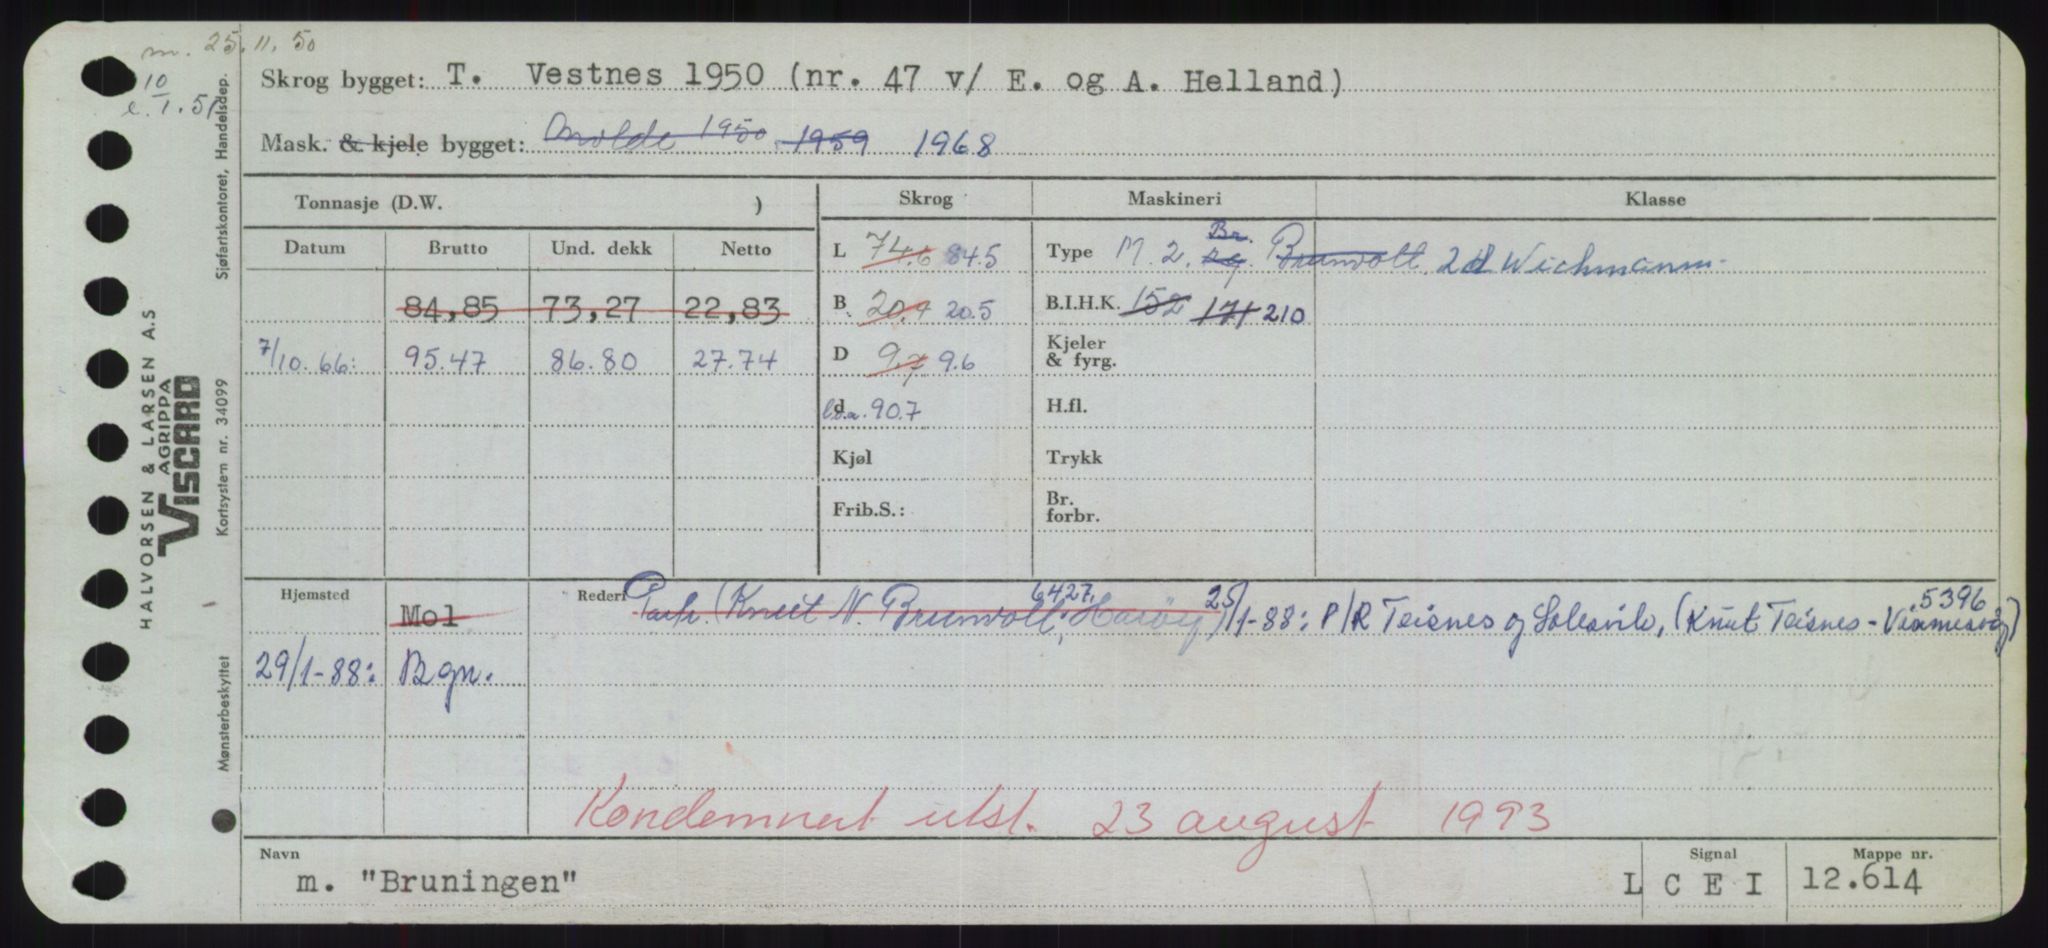 m. 25.11.50
10
e. 1.51
Skrog bygget: T. Vestnes 1950 (nr. 47 v/ E. og A. Helland)
Mask. & kjele bygget: Molde 1950 1959 1968
Tonnasje (D.W. )
Skrog Maskineri Klasse
Datum Brutto Und. dekk Netto
L 74.6 84.5
Type M. 2. Br. Brunvoll 2 Wichmann
84,85 73,27 22,83
B 20.9 20.5
B.I.H.K. 152 171 210
7/10.66: 95.47 86.80 27.74
D 9.7 9.6
Kjeler
& fyrg.
d l.o.a. 90.7
H.fl.
Kjøl
Trykk
Frib.S.:
Br.
forbr.
Hjemsted Mol
Rederi Partr. (Knut N. Brunvoll, 6427 Harøy) 25/1-88: P/R Teisnes og Solesvik, (Knut Teisnes - 5396 Vestnesvåg)
29/1-88: Bgn.
Kondemnert utst. 23 august 1993
Navn Signal Mappe nr.
m. "Bruningen" L C E I 12.614
HALVORSEN & LARSEN A.S
AGRIPPA
VISCARD
Mønsterbeskyttet Kortsystem nr. 34099 Sjøfartskontoret, Handelsdep.